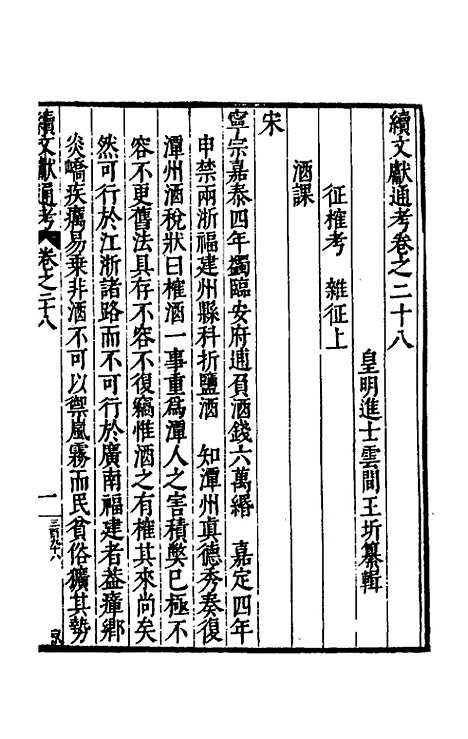 續文獻通考卷之二十八
皇明進士雲間王圻纂輯
征榷考 雜征上
酒課
宋
寧宗嘉泰四年蠲臨安府逋負酒錢六萬緡 嘉定四年
申禁兩浙福建州縣科折鹽酒 知潭州真德秀奏復
潭州酒稅狀曰榷酒一事重爲潭人之害積弊已極不
容不更舊法具存不容不復竊惟酒之有榷其來尚矣
然可行於江浙諸路而不可行於廣南福建者葢瘴鄉
炎嶠疾癘易乗非酒不可以禦嵐霧而民貧俗獷其勢
續文獻通考 卷之二十八
一